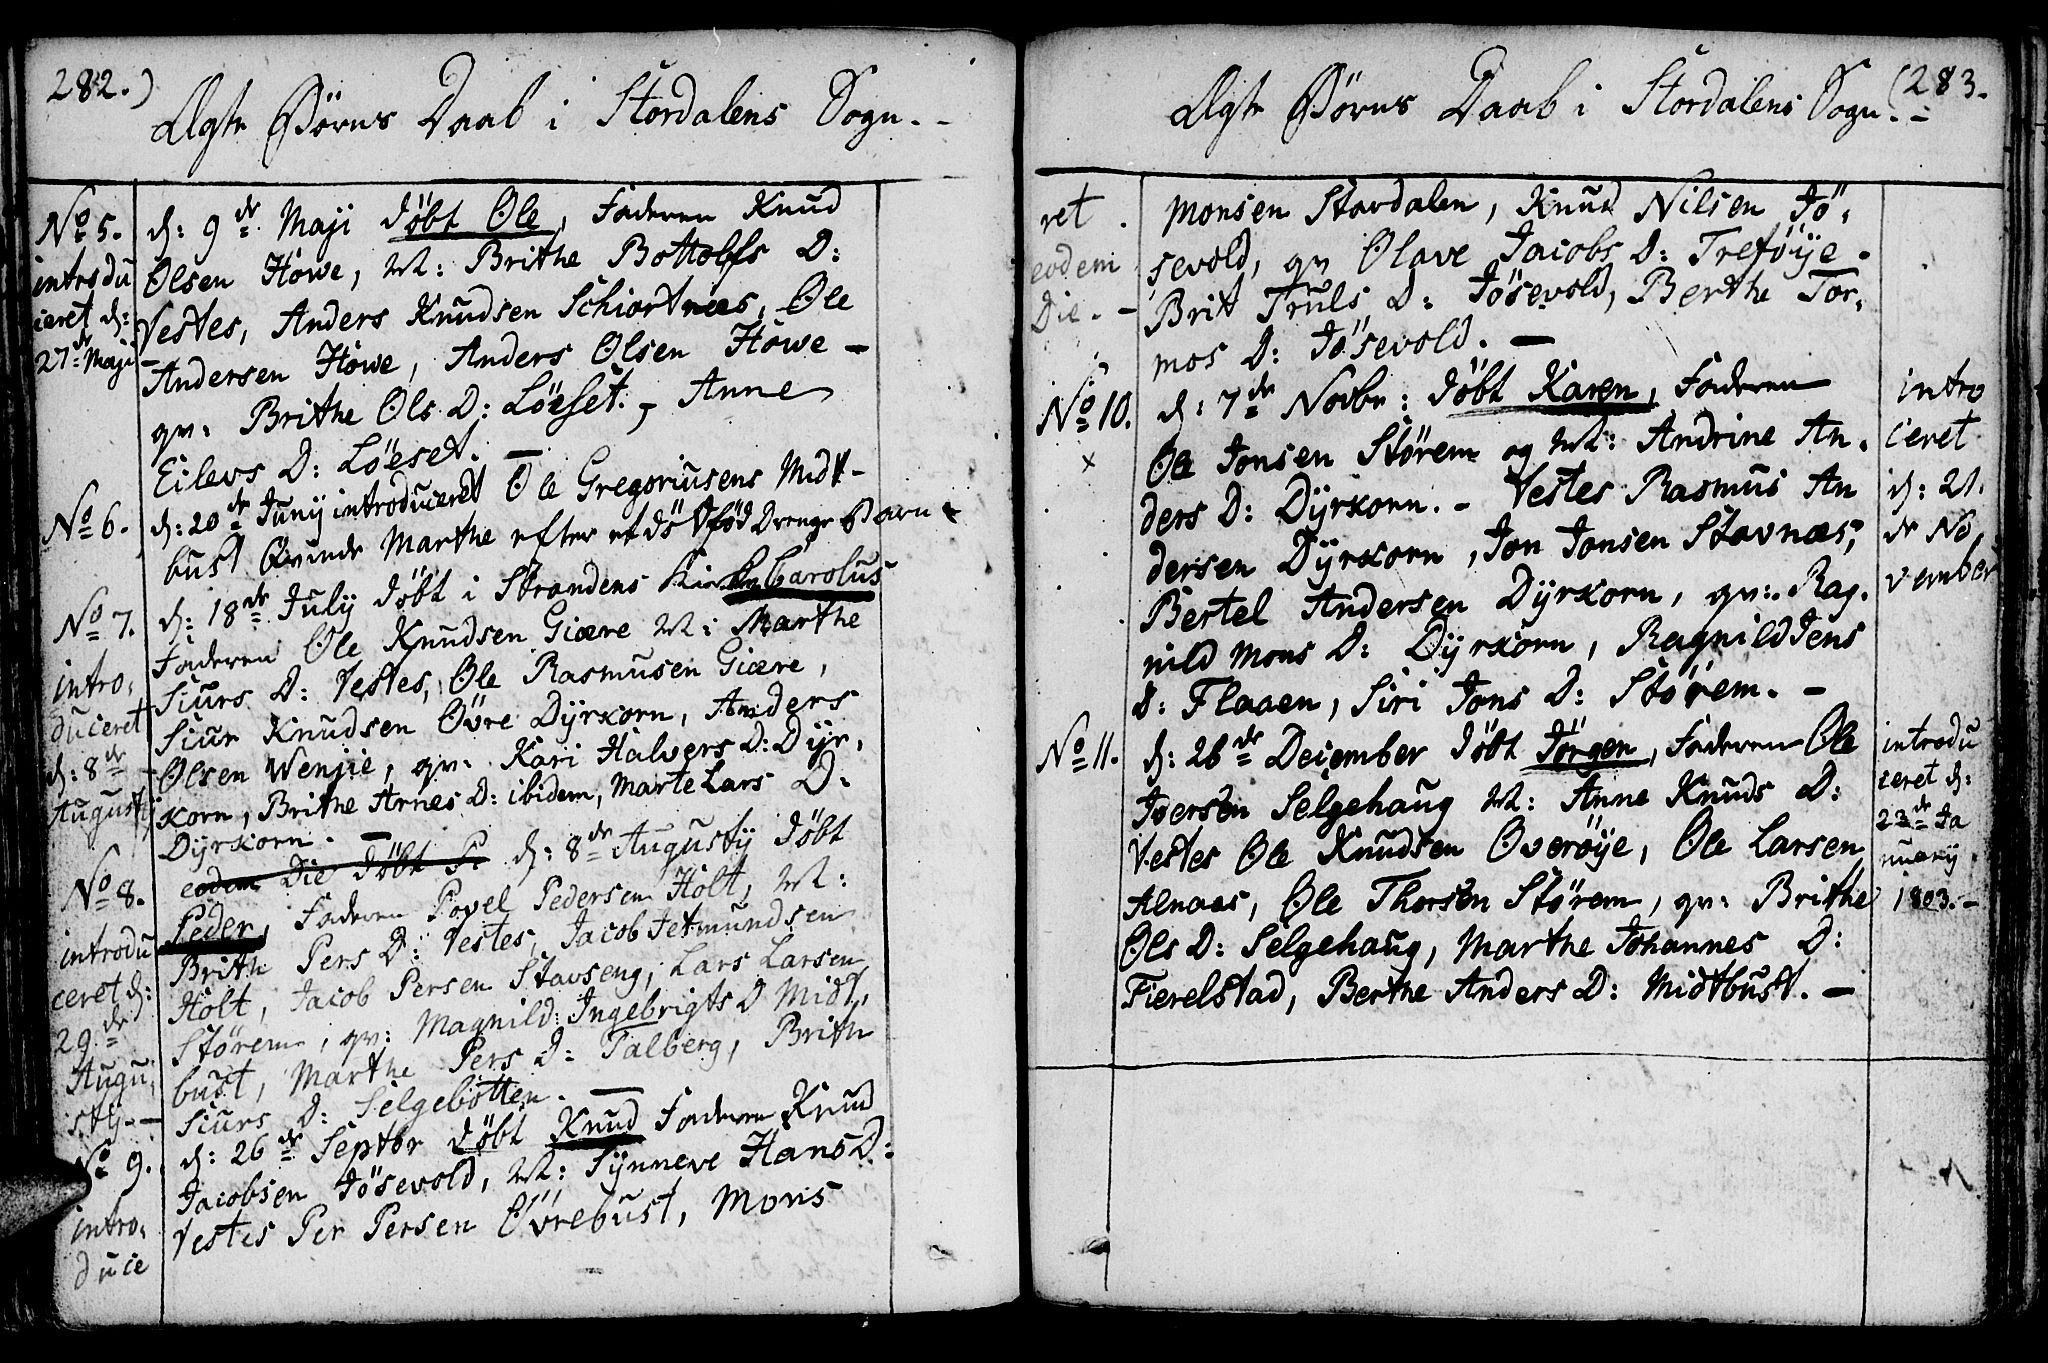 282.)
Ægte Børns Daab i Stordalens Sogn. -
No 5.
introdu
ceret d:
27 de Maji
d: 9de Maji døbt Ole, Faderen Knud
Olsen Howe, M: Brithe Bottolfs D:
Testes, Anders Knudsen Schiortnes, Ole
Andersen Howe, Anders Olsen Howe -
qv: Brithe Ols D: Löeset. - Anne
Eilevs D: Löeset. -
No 6.
d: 20de Junij introduceret Ole Gregoriusens Midt-
bust Qvinde Marthe efter et dödfød Drenge Barn
No 7.
intro,
duceret
d: 8de
Augusti
d: 18de July døbt i Strandens Kirke Carolus
Faderen Ole Knudsen Giære M: Marthe
Siurs D: Testes, Ole Rasmusen Giære,
Siur Knudsen Øvre Dyrkorn, Anders
Olsen Wenjie, qv: Kari Halvers D: Dyr,
korn, Brithe Arnes D: ibidem, Marte Lars D:
Dyrkorn. -
No 8.
introdu
ceret d:
29de
Augu,
stij. -
eodem Die døbt P. d: 8de Augustij døbt
Peder, Faderen Povel Pedersen Holt, M:
Brith Pers D: Testes, Jacob Jetmundsen
Holt, Jacob Persen Stavseng, Lars Larsen
Störem, qv: Magnild Ingebrigts D Midt,
bust, Marthe Pers D: Talberg, Brith
Siurs D: Selgebotten. -
No 9.
intro,
duce
d: 26de Septbr døbt Knud Faderen Knud
Jacobsen Jösevold, M: Synneve Hans D:
Testes Per Persen Övrebust, Mons
(283.
Ægte Børns Daab i Stordalens Sogn. -
ret
eodem
Die. -
Monsen Stordalen, Knud Nilsen Jö,
sevold, qv Olave Jacobs D: Treföye.
Brit Truls D: Jösevold, Berthe Tor,
mos D: Jösevold. -
No 10.
x
d: 7de Novbr: døbt Karen, Faderen
Ole Jonsen Störem og M: Andrine An,
ders D: Dyrkorn. - Testes Rasmus An
dersen Dyrkorn, Jon Jonsen Stavnæs,
Bertel Andersen Dyrkorn, qv: Rag,
nild Mons D: Dyrkorn, Ragnild Jens
D: Flaaen, Siri Jons D: Störem. -
intro
ceret
d: 21.
de No,
vember
No 11.
d: 26de December døbt Jörgen, Faderen Ole
Iversen Selgehaug M: Anne Knuds D:
Testes Ole Knudsen Overöye, Ole Larsen
Alnaas, Ole Thorsen Störem, qv: Brithe
Ols D: Selgehaug, Marthe Johannes D:
Fierelstad, Berthe Anders D: Midtbust. -
introdu
ceret d:
23de Ja
nuarij
1803. -